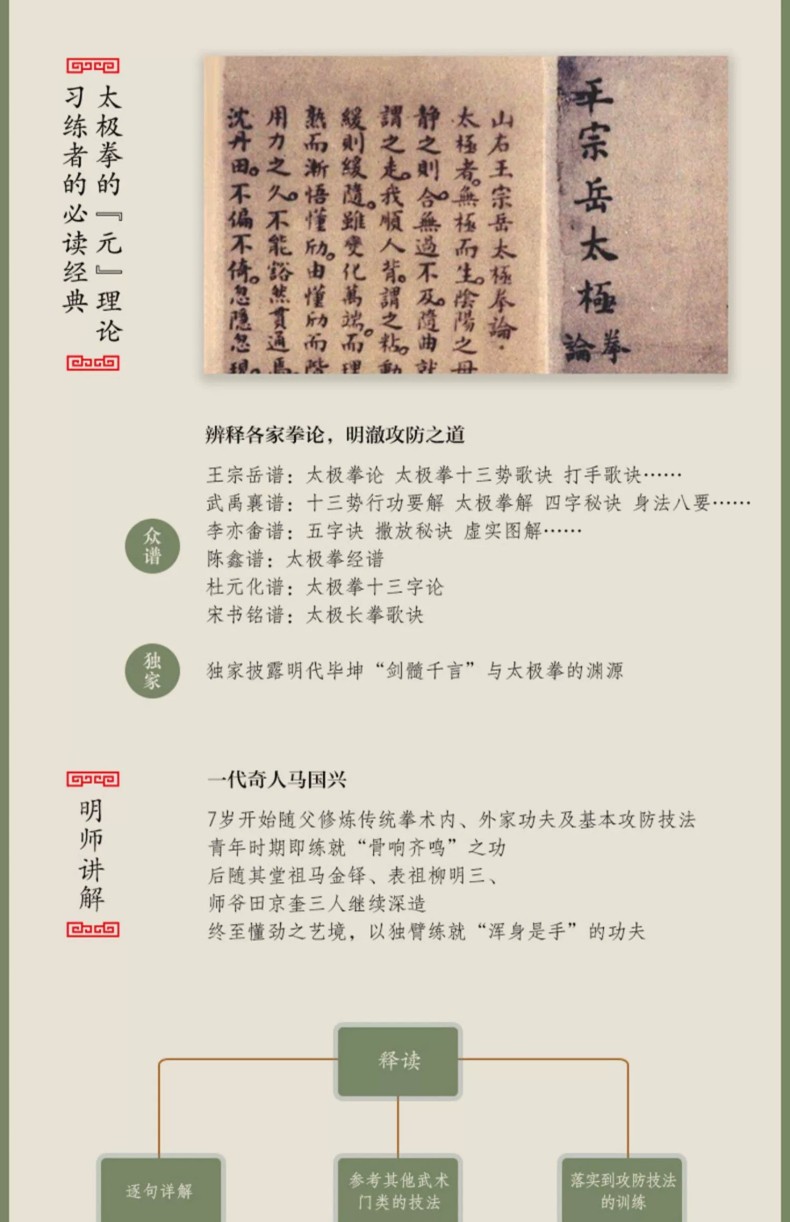 太极拳的『元』理论
习练者的必读经典
王宗岳太極
拳論
山右王宗岳太極拳論
太極者。無極而生。陰陽之母
静之則合。無過不及。隨曲就
謂之走。我順人背。謂之粘。動
緩則緩隨。雖變化萬端。而理
熟而漸悟懂劤。由懂劤而階
用力之久。不能豁然貫通焉
沈丹田。不偏不倚。忽隱忽現
辨释各家拳论，明澈攻防之道
众谱
王宗岳谱：太极拳论 太极拳十三势歌诀 打手歌诀……
武禹襄谱：十三势行功要解 太极拳解 四字秘诀 身法八要……
李亦畬谱：五字诀 撒放秘诀 虚实图解……
陈鑫谱：太极拳经谱
杜元化谱：太极拳十三字论
宋书铭谱：太极长拳歌诀
独家
独家披露明代毕坤“剑髓千言”与太极拳的渊源
明师讲解
一代奇人马国兴
7岁开始随父修炼传统拳术内、外家功夫及基本攻防技法
青年时期即练就“骨响齐鸣”之功
后随其堂祖马金铎、表祖柳明三、
师爷田京奎三人继续深造
终至懂劲之艺境，以独臂练就“浑身是手”的功夫
释读
逐句详解
参考其他武术
门类的技法
落实到攻防技法
的训练